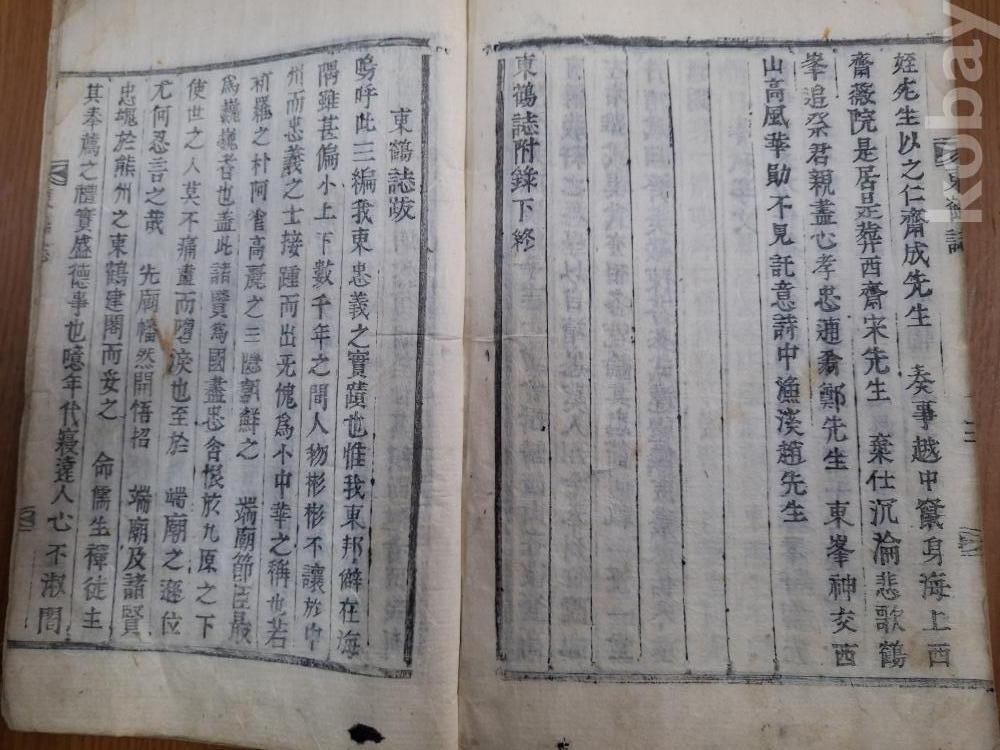 東鶴誌
姪先生以之仁齋成先生 奏事越中竄身海上西
齋薇院是居是葬西齋宋先生 棄仕沉淪悲歌鶴
峯追祭君親盡心孝忠遁翁鄭先生 東峯神交西
山高風華勛不見託意詩中漁溪趙先生
東鶴誌附錄下終
東鶴誌跋
嗚呼此三編我東忠義之實蹟也惟我東邦僻在海
隅雖甚偏小上下數千年之間人物彬彬不讓於中
州而忠義之士接踵而出旡愧爲小中華之稱也若
新羅之朴阿飡高麗之三隱朝鮮之 端廟節臣最
爲巍巍者也盖此諸賢爲國盡忠含恨於九原之下
使世之人莫不痛盡而墮淚也至於 端廟之遜位
尤何忍言之哉 先廟幡然開悟招 端廟及諸賢
忠塊於熊州之東鶴建閣而妥之 命儒生稺徒主
其奉薦之禮實盛德事也噫年代寢遠人心不淑間
kobay